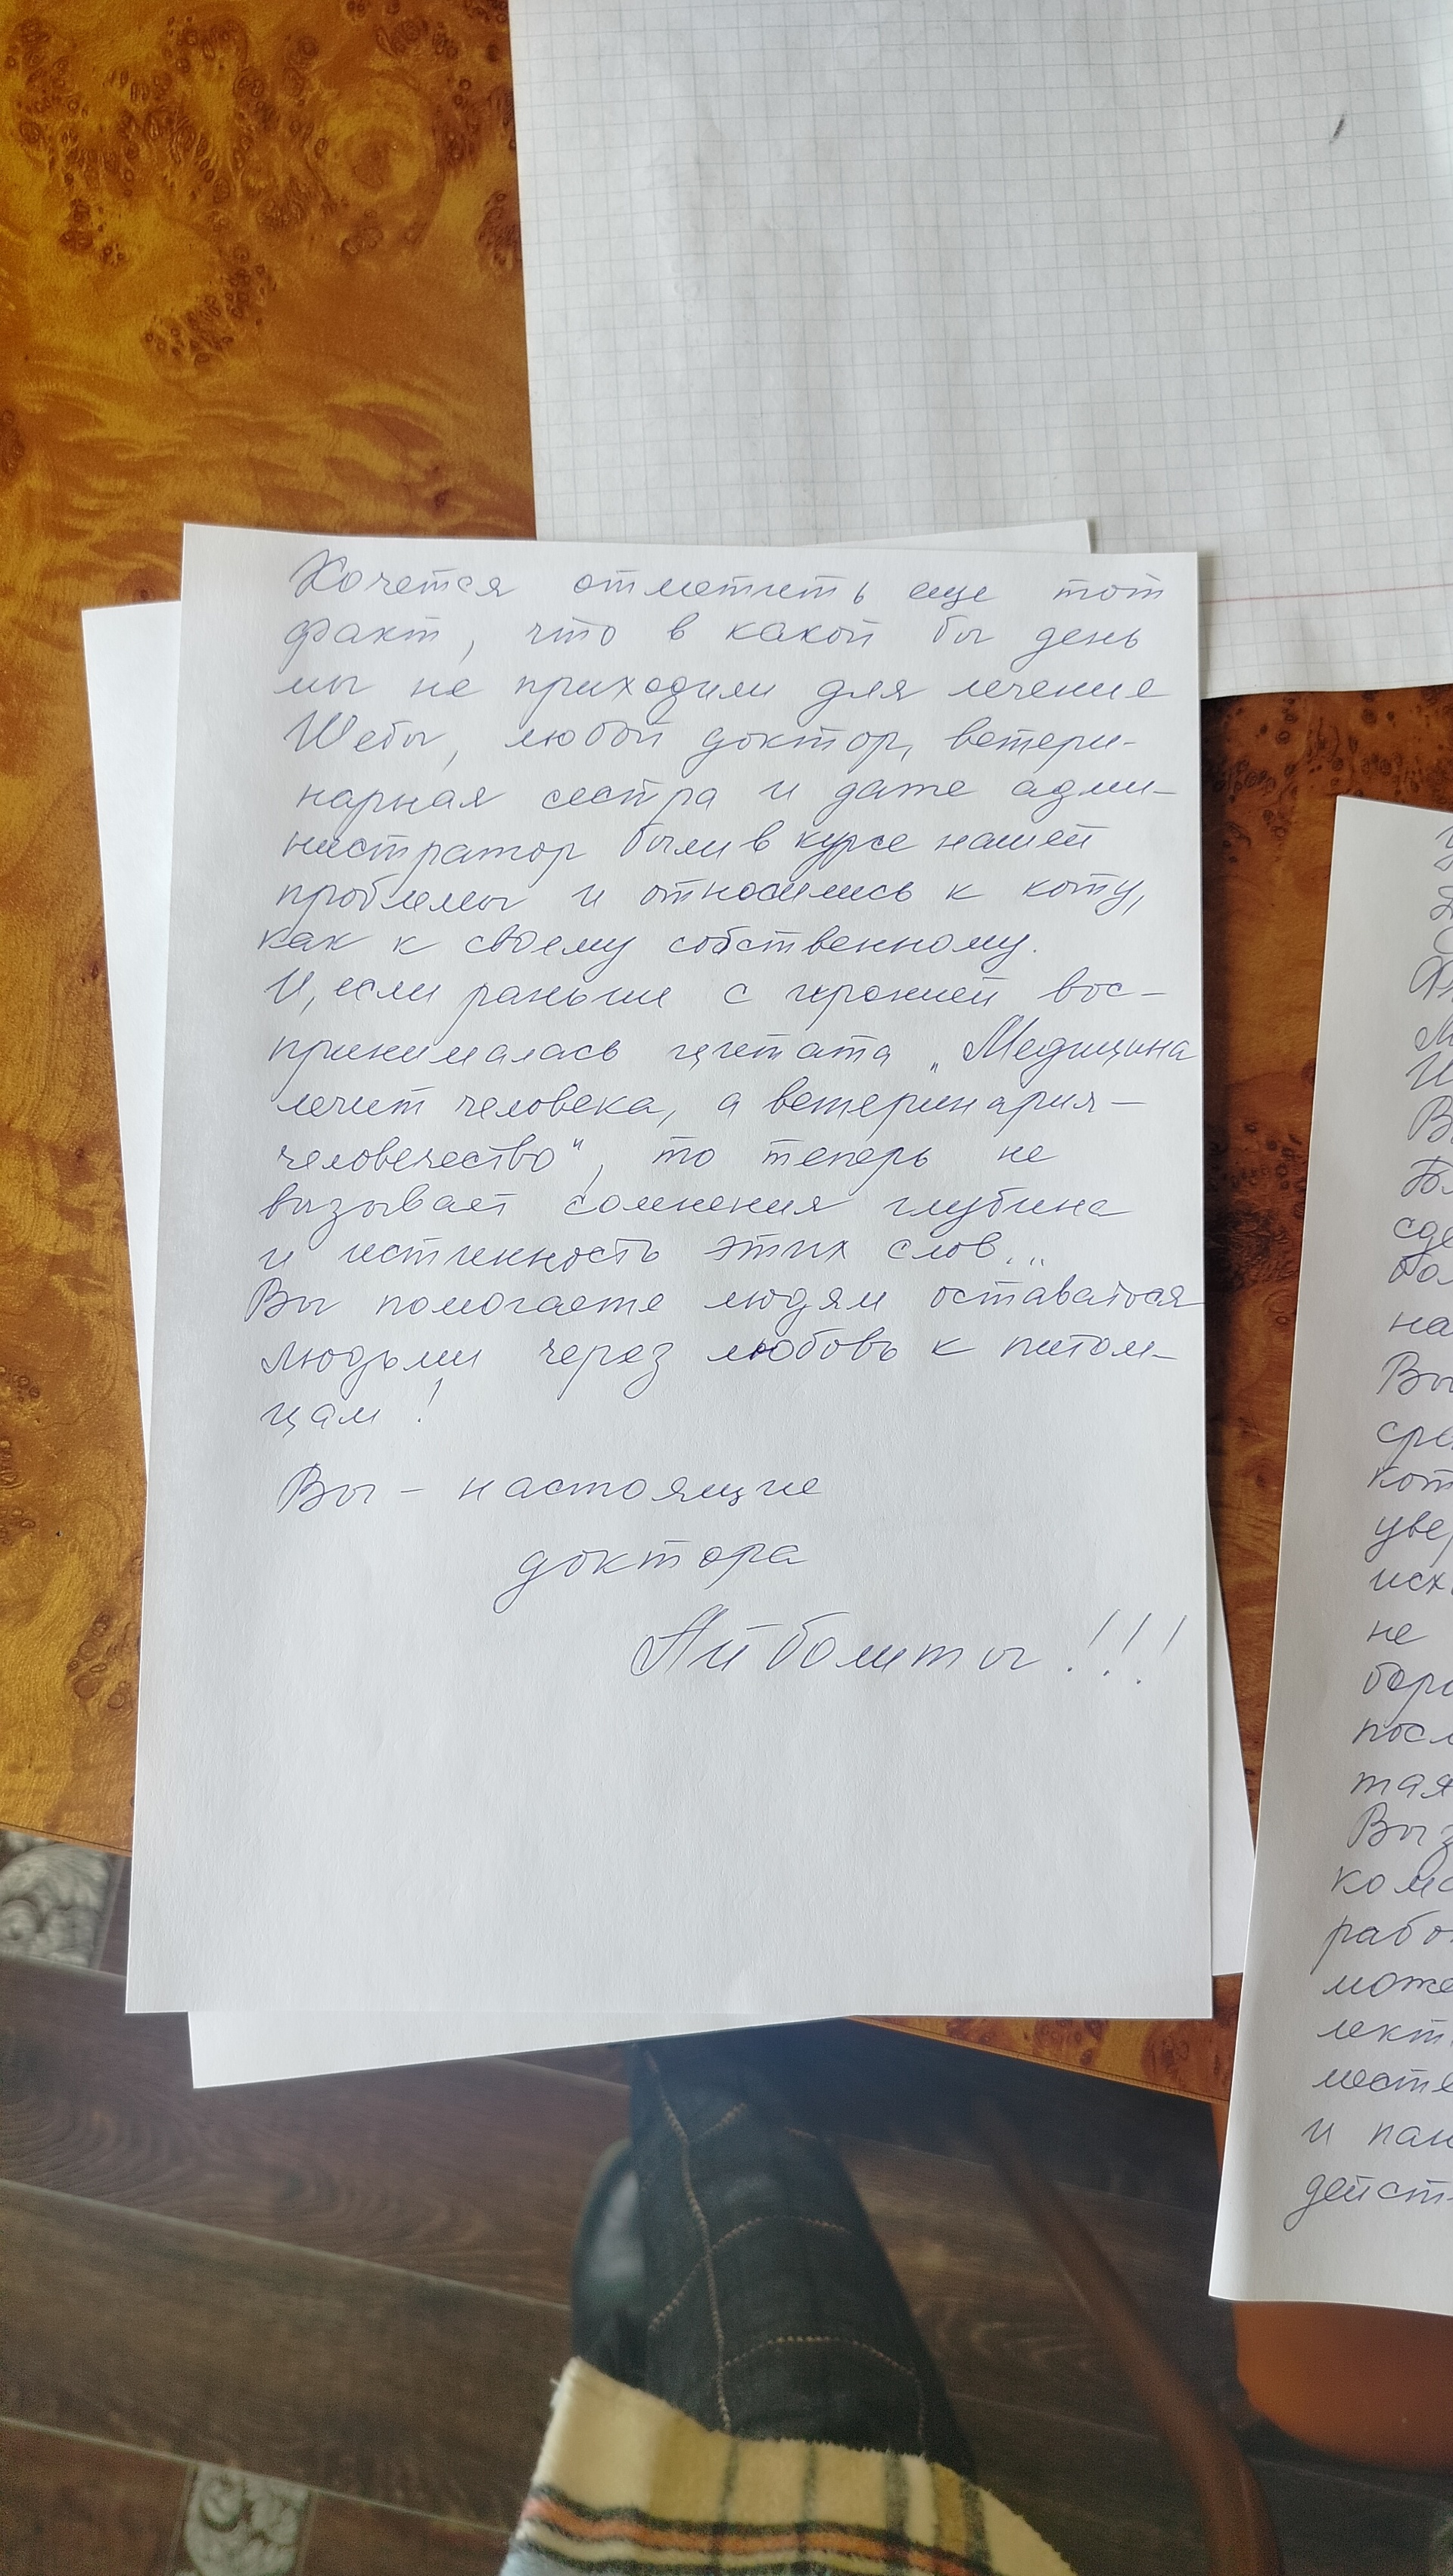 Хочется отметить еще тот
факт, что в какой бы день
мы не приходили для лечение
Шебы, любой доктор, ветери-
нарная сестра и даже адми-
нистратор были в курсе нашей
проблемы и относились к коту,
как к своему собственному.
И, если раньше с иронией вос-
принималась цитата „Медицина
лечит человека, а ветеринария -
человечество", то теперь не
вызывает сомнения глубина
и истинность этих слов...
Вы помогаете людям оставаться
людьми через любовь к питом-
цам!
Вы - настоящие
доктора
Айболиты!!!
сде
на
Вы
сре
кот
уве
исх
не
посл
тая
Вы
рабо
може
лект
месте
и
дейст